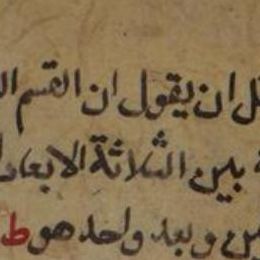 ان يقول ان القسم
بين الثلاثة الابعاد
وبعد واحد هو ط